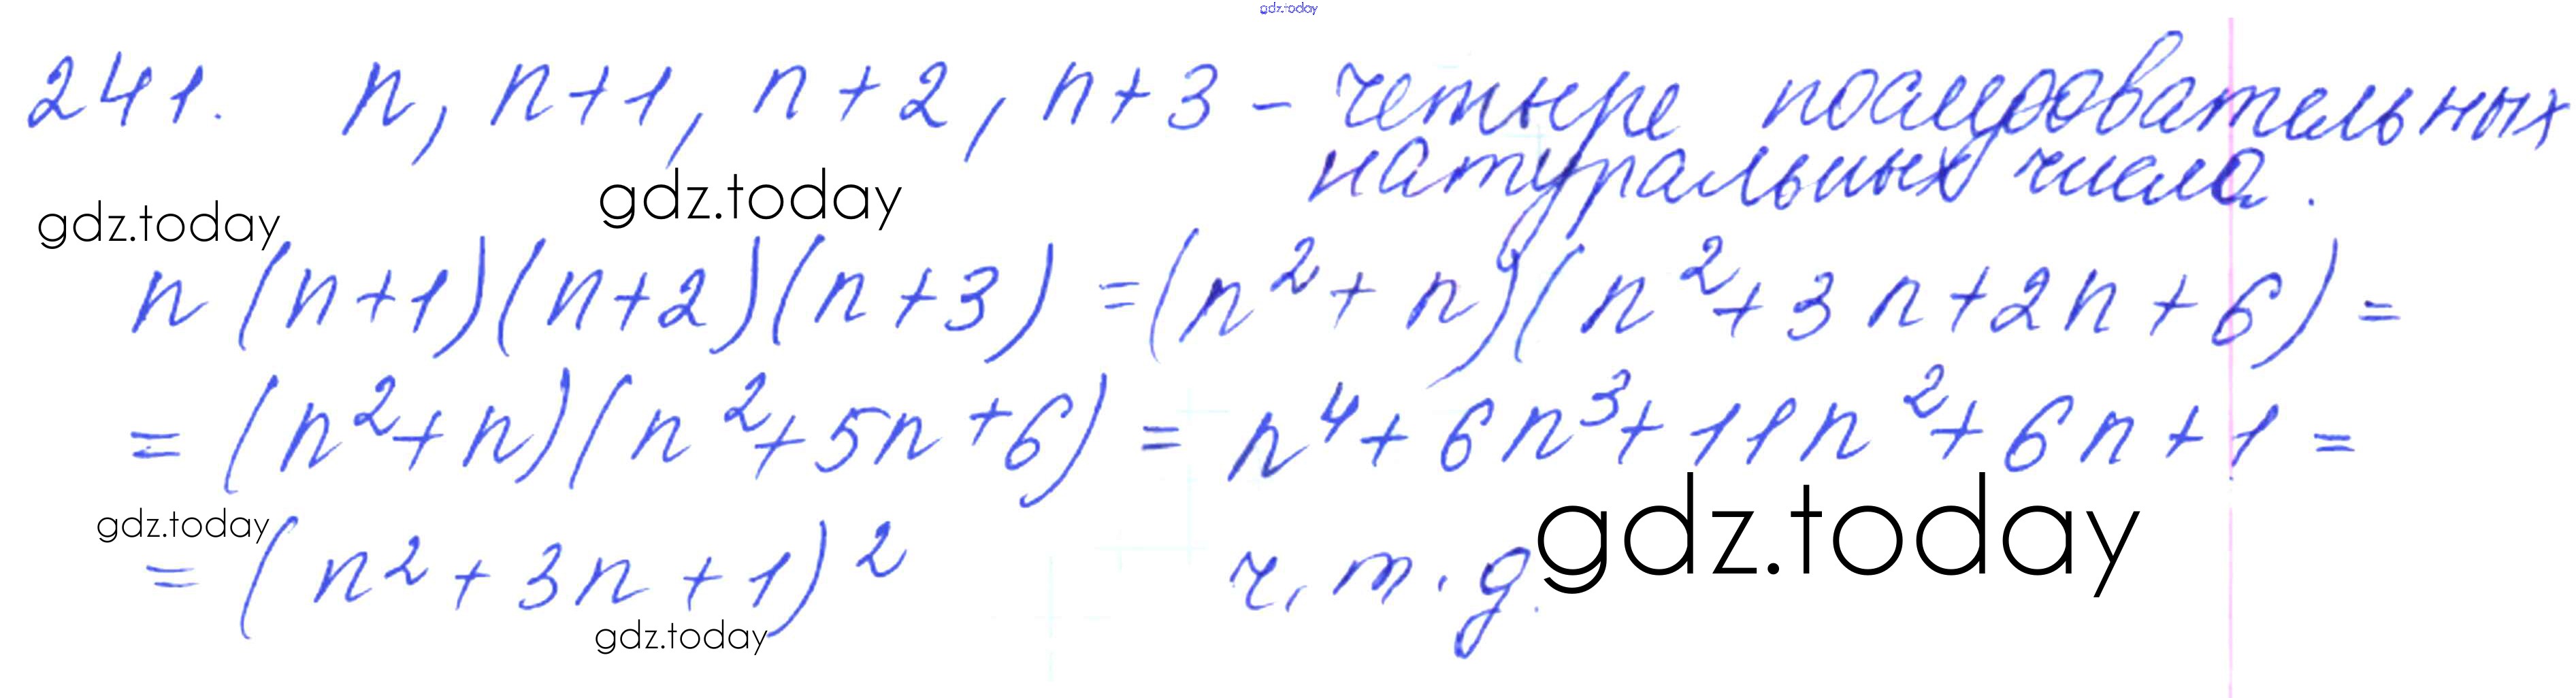 gdz.today
241. n, n+1, n+2, n+3 - четыре последовательных
натуральных числа.
gdz.today gdz.today
n(n+1)(n+2)(n+3) = (n²+n)(n²+3n+2n+6) =
= (n²+n)(n²+5n+6) = n⁴+6n³+11n²+6n+1 =
gdz.today gdz.today
= (n²+3n+1)² ч.т.д.
gdz.today